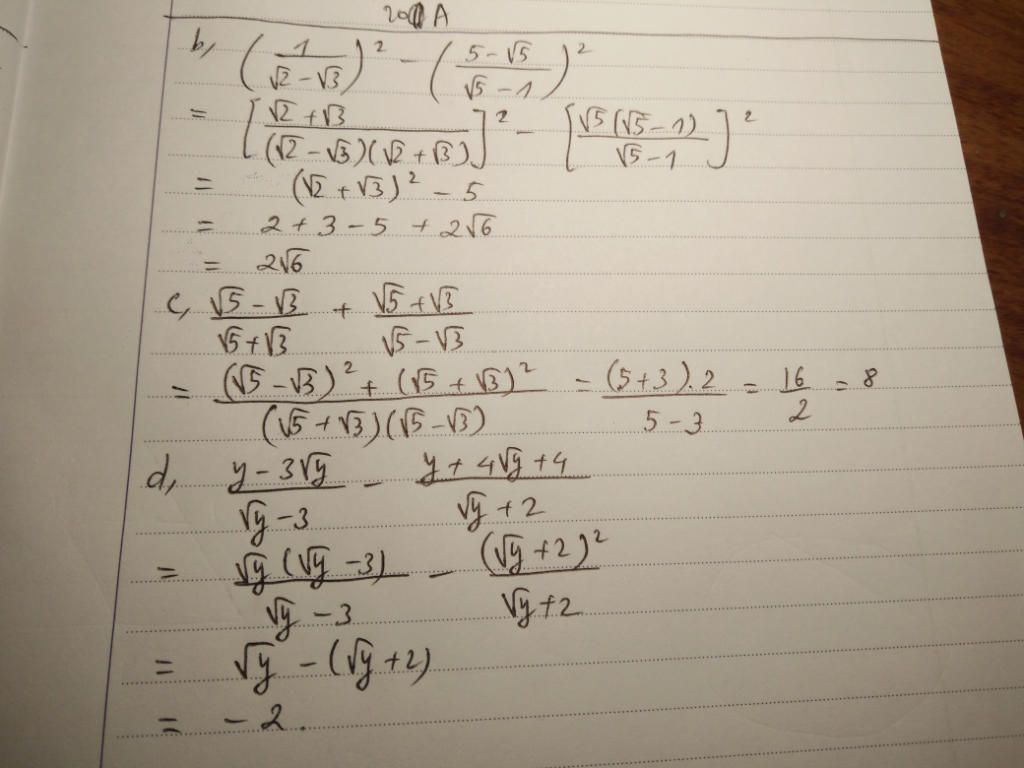 A
b, (1/(√2 - √3))² - ((5 - √5)/(√5 - 1))²
= [(√2 + √3)/((√2 - √3)(√2 + √3))]² - [√5(√5 - 1)/(√5 - 1)]²
= (√2 + √3)² - 5
= 2 + 3 - 5 + 2√6
= 2√6
c, (√5 - √3)/(√5 + √3) + (√5 + √3)/(√5 - √3)
= ((√5 - √3)² + (√5 + √3)²)/((√5 + √3)(√5 - √3)) = ((5 + 3).2)/(5 - 3) = 16/2 = 8
d, (y - 3√y)/(√y - 3) - (y + 4√y + 4)/(√y + 2)
= (√y(√y - 3))/(√y - 3) - (√y + 2)²/(√y + 2)
= √y - (√y + 2)
= - 2.